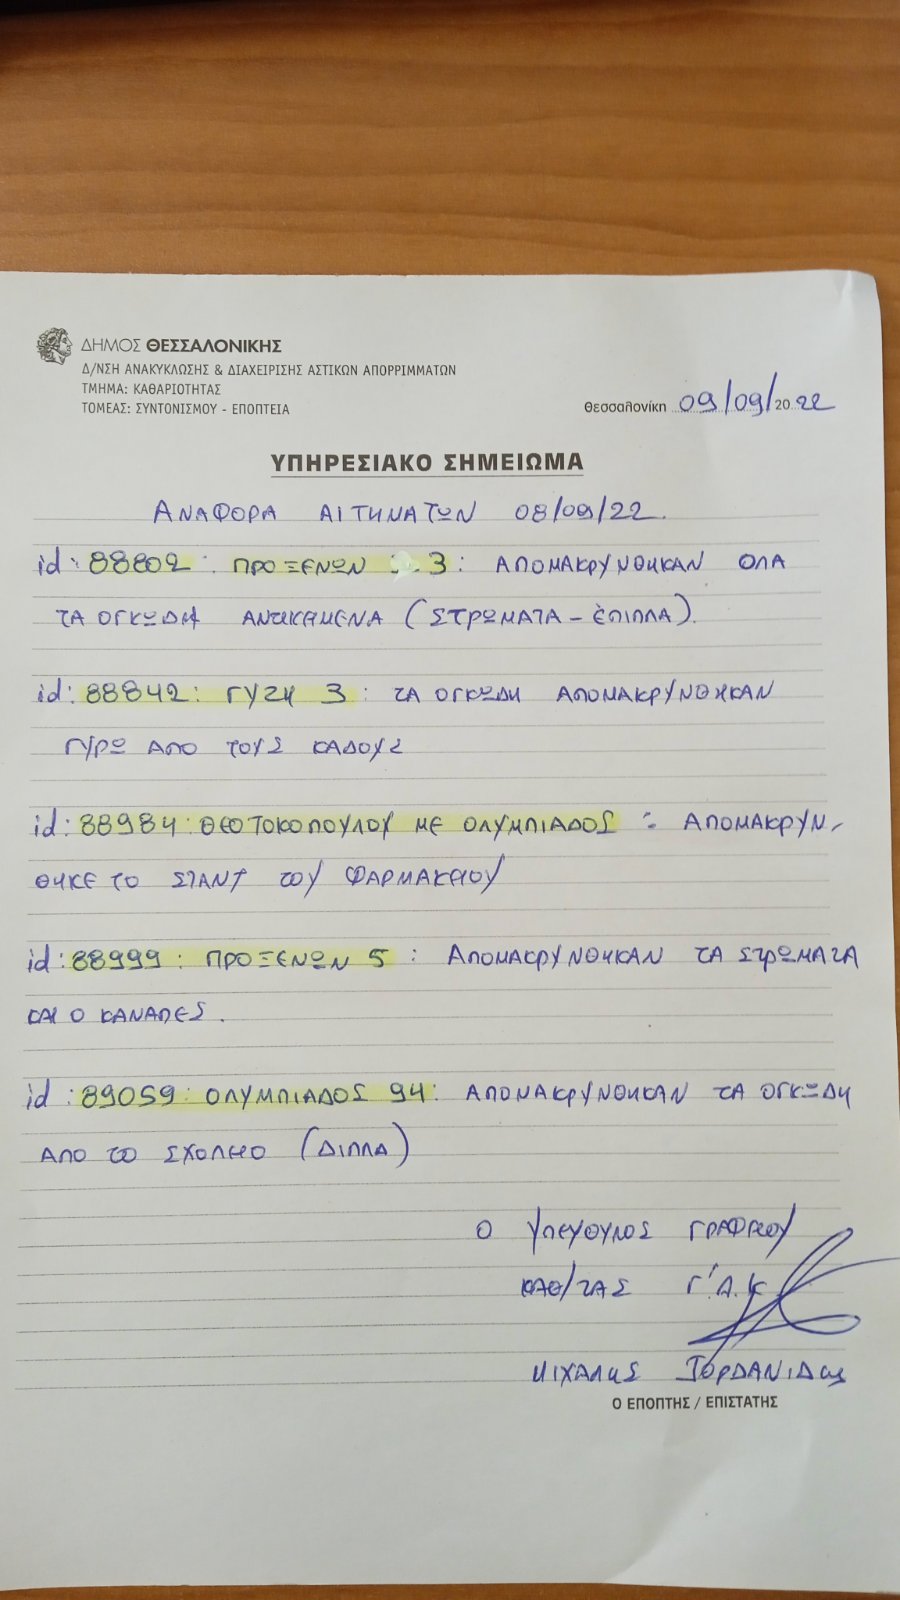 ΔΗΜΟΣ ΘΕΣΣΑΛΟΝΙΚΗΣ
Δ/ΝΣΗ ΑΝΑΚΥΚΛΩΣΗΣ & ΔΙΑΧΕΙΡΙΣΗΣ ΑΣΤΙΚΩΝ ΑΠΟΡΡΙΜΜΑΤΩΝ
ΤΜΗΜΑ: ΚΑΘΑΡΙΟΤΗΤΑΣ
ΤΟΜΕΑΣ: ΣΥΝΤΟΝΙΣΜΟΥ - ΕΠΟΠΤΕΙΑ
Θεσσαλονίκη 09/09/2022
ΥΠΗΡΕΣΙΑΚΟ ΣΗΜΕΙΩΜΑ
ΑΝΑΦΟΡΑ ΑΙΤΗΜΑΤΩΝ 08/09/22.
id: 88802: ΠΡΟΞΕΝΩΝ 3: ΑΠΟΜΑΚΡΥΝΘΗΚΑΝ ΟΛΑ
ΤΑ ΟΓΚΩΔΗ ΑΝΤΙΚΕΙΜΕΝΑ (ΣΤΡΩΜΑΤΑ - ΕΠΙΠΛΑ).
id: 88842: ΓΥΖΗ 3: ΤΑ ΟΓΚΩΔΗ ΑΠΟΜΑΚΡΥΝΘΗΚΑΝ
ΓΥΡΩ ΑΠΟ ΤΟΥΣ ΚΑΔΟΥΣ
id: 88984: ΘΕΟΤΟΚΟΠΟΥΛΟΥ ΜΕ ΟΛΥΜΠΙΑΔΟΣ : ΑΠΟΜΑΚΡΥΝ-
ΘΗΚΕ ΤΟ ΣΤΑΝΤ ΤΟΥ ΦΑΡΜΑΚΕΙΟΥ
id: 88999: ΠΡΟΞΕΝΩΝ 5 : ΑΠΟΜΑΚΡΥΝΘΗΚΑΝ ΤΑ ΣΤΡΩΜΑΤΑ
ΚΑΙ Ο ΚΑΝΑΠΕΣ.
id: 89059: ΟΛΥΜΠΙΑΔΟΣ 94: ΑΠΟΜΑΚΡΥΝΘΗΚΑΝ ΤΑ ΟΓΚΩΔΗ
ΑΠΟ ΤΟ ΣΧΟΛΕΙΟ (ΔΙΠΛΑ)
Ο ΥΠΕΥΘΥΝΟΣ ΓΡΑΦΕΙΟΥ
ΚΑΘ/ΤΑΣ Γ'Δ.Κ
ΜΙΧΑΛΗΣ ΙΟΡΔΑΝΙΔΗΣ
Ο ΕΠΟΠΤΗΣ / ΕΠΙΣΤΑΤΗΣ